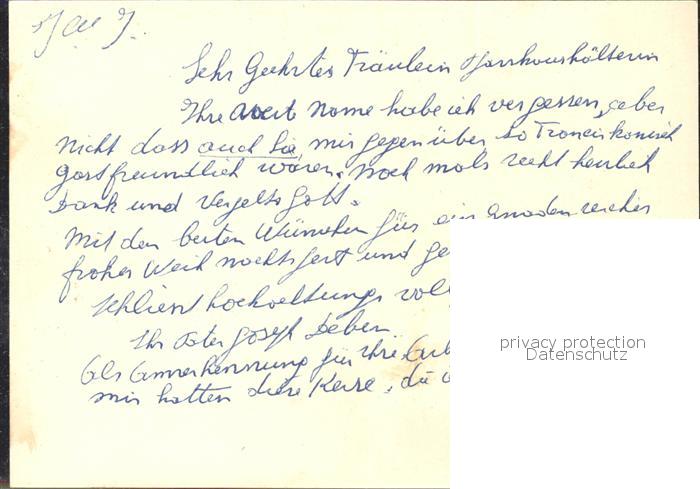 Sehr Geehrtes Fräulein Pfarrhaushälterin
Ihre Name habe ich vergessen, aber
nicht dass auch Sie mir gegenüber so Franciskanisch
gastfreundlich waren. Noch mals recht herzlich
Dank und Vergelts Gott.
Mit den besten Wünschen für ein gnadenreiches
frohes Weihnachtsfest und
schliesst hochachtungsvoll
Ihr Pater Josef
Als Annerkennung für Ihre
mir hatten diese Kerze, die
privacy protection
Datenschutz